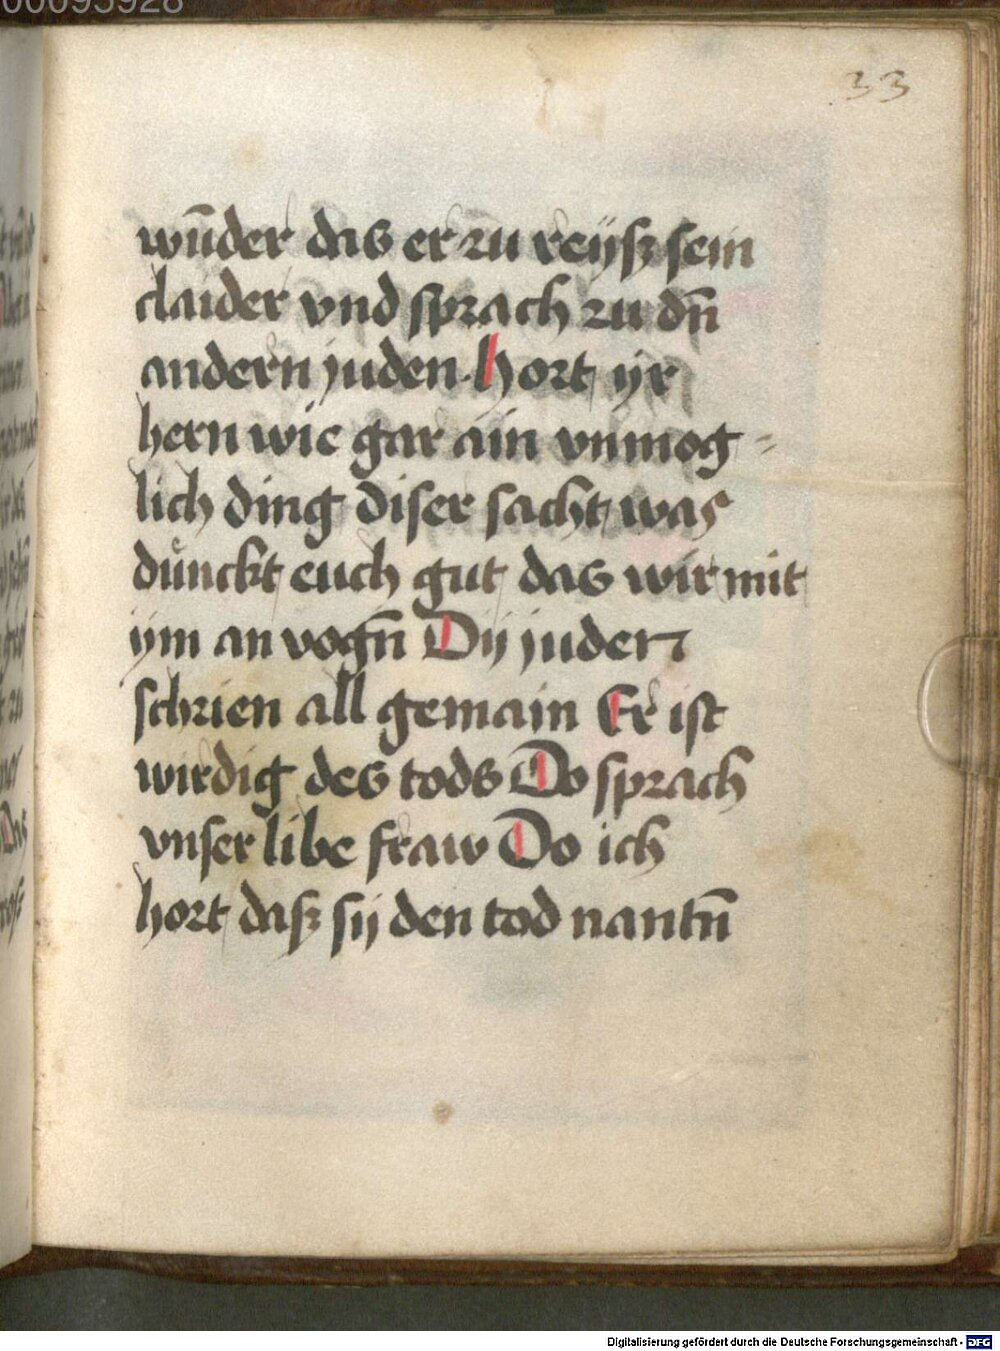 00095928
33
wūder das er zu reÿsz sein
claider vnd sprach zu dn̄
andern juden. Hort ÿr
hern wie gar ain vnmog-
lich ding diser sacht was
dünckt euch gut das wir mit
ÿm an vogn̄ Dÿ juden
schrien all gemain Er ist
wirdig des tods Do sprach
vnser libe fraw Do ich
hort dasz sÿ den tod nantn̄
Digitalisierung gefördert durch die Deutsche Forschungsgemeinschaft - DFG